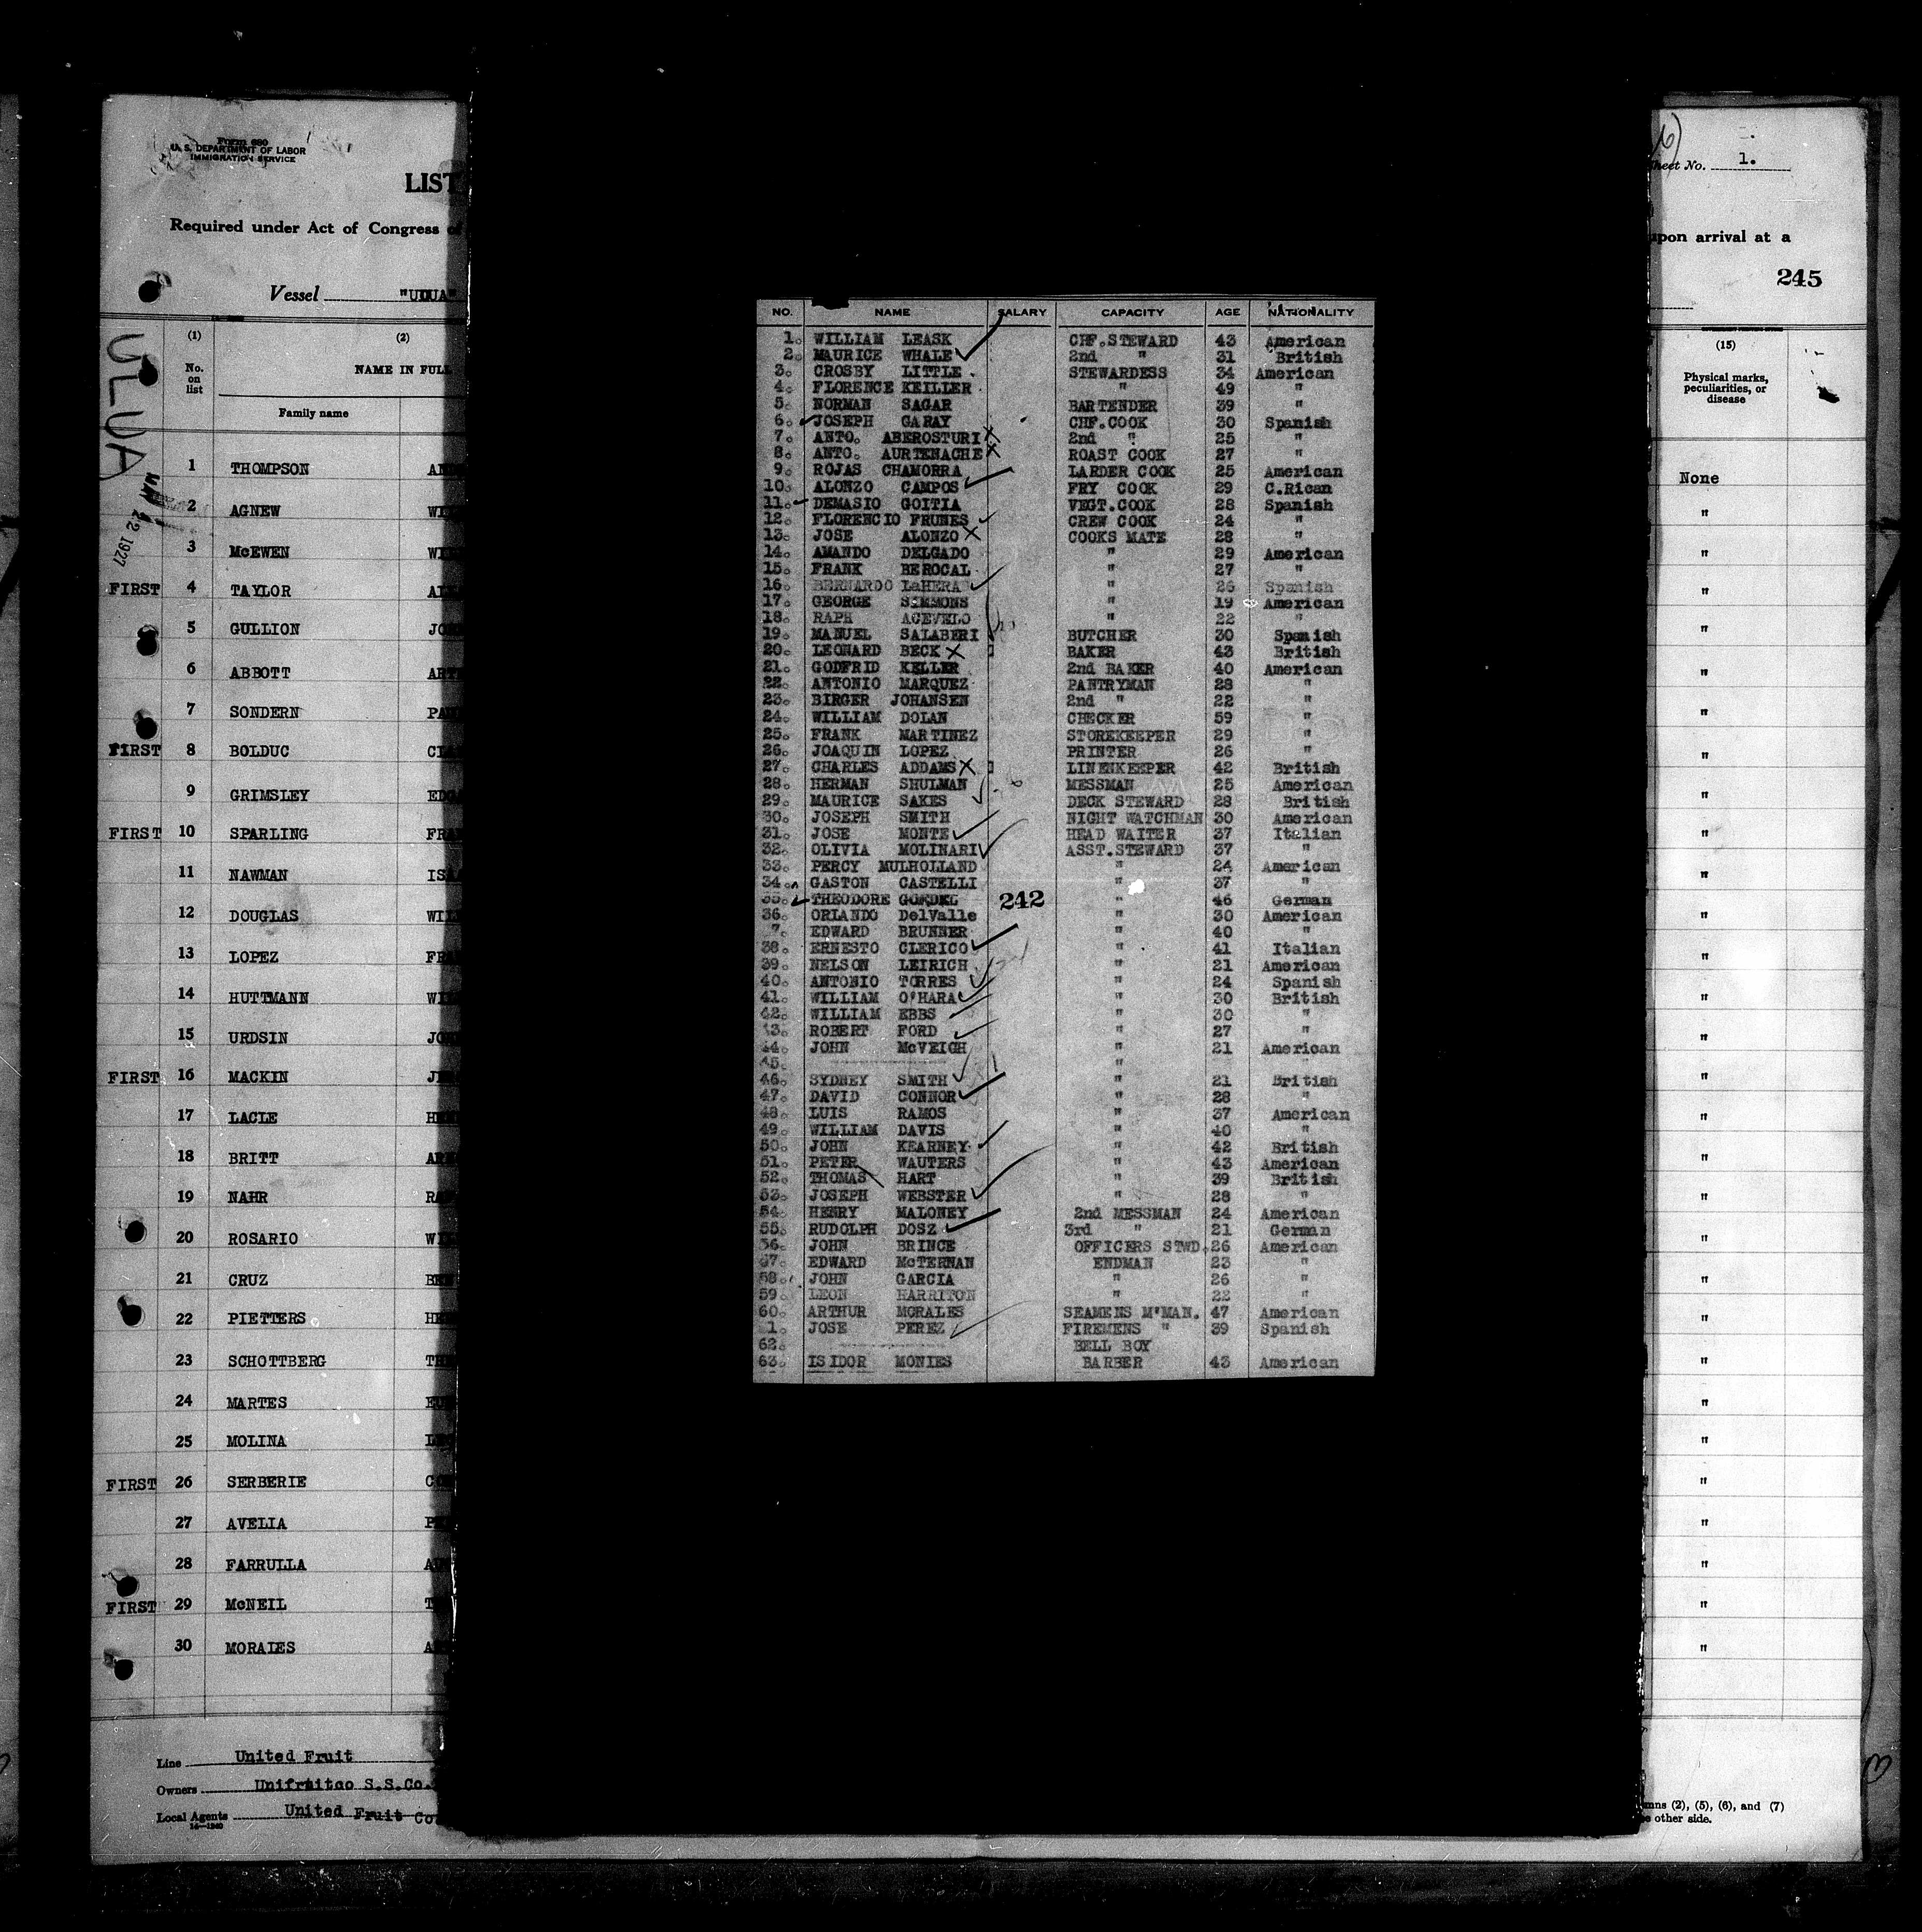 Form 680
U. S. DEPARTMENT OF LABOR
IMMIGRATION SERVICE
LIST
Required under Act of Congress of
Vessel "ULUA"
ULUA
(1) (2)
No. on list
NAME IN FULL
Family name
MAY 22 1927
1 THOMPSON
2 AGNEW
3 McEWEN
FIRST 4 TAYLOR
5 GULLION
6 ABBOTT
7 SONDERN
FIRST 8 BOLDUC
9 GRIMSLEY
FIRST 10 SPARLING
11 NAWMAN
12 DOUGLAS
13 LOPEZ
14 HUTTMANN
15 URDSIN
FIRST 16 MACKIN
17 LACLE
18 BRITT
19 NAHR
20 ROSARIO
21 CRUZ
22 PIETTERS
23 SCHOTTBERG
24 MARTES
25 MOLINA
FIRST 26 SERBERIE
27 AVELIA
28 FARRULLA
FIRST 29 McNEIL
30 MORALES
Line United Fruit
Owners Unifruitco S.S.Co.
Local Agents United Fruit Co.
NO. NAME SALARY CAPACITY AGE NATIONALITY
1. WILLIAM LEASK CHF.STEWARD 43 American
2. MAURICE WHALE 2nd " 31 British
3. CROSBY LITTLE STEWARDESS 34 American
4. FLORENCE KEILLER " 49 "
5. NORMAN SAGAR BARTENDER 39 "
6. JOSEPH GARAY CHF.COOK 30 Spanish
7. ANTO. ABEROSTURI 2nd " 25 "
8. ANTO. AURTENACHE ROAST COOK 27 "
9. ROJAS CHAMORRA LARDER COOK 25 American
10. ALONZO CAMPOS FRY COOK 29 C.Rican
11. DEMASIO GOITIA VEGT.COOK 28 Spanish
12. FLORENCIO FRUNES CREW COOK 24 "
13. JOSE ALONZO COOKS MATE 28 "
14. AMANDO DELGADO " 29 American
15. FRANK BEROCAL " 27 "
16. BERNARDO LaHERA " 26 Spanish
17. GEORGE SIMMONS " 19 American
18. RAPH ACEVELO " 22 "
19. MANUEL SALABERI BUTCHER 30 Spanish
20. LEONARD BECK BAKER 43 British
21. GODFRID KELLER 2nd BAKER 40 American
22. ANTONIO MARQUEZ PANTRYMAN 28 "
23. BIRGER JOHANSEN 2nd " 22 "
24. WILLIAM DOLAN CHECKER 59 "
25. FRANK MARTINEZ STOREKEEPER 29 "
26. JOAQUIN LOPEZ PRINTER 26 "
27. CHARLES ADDAMS LINENKEEPER 42 British
28. HERMAN SHULMAN MESSMAN 25 American
29. MAURICE SAKES DECK STEWARD 28 British
30. JOSEPH SMITH NIGHT WATCHMAN 30 American
31. JOSE MONTE HEAD WAITER 37 Italian
32. OLIVIA MOLINARI ASST.STEWARD 37 "
33. PERCY MULHOLLAND " 24 American
34. GASTON CASTELLI " 37 "
35. THEODORE GOEDEL 242 " 46 German
36. ORLANDO DelValle " 30 American
7. EDWARD BRUNNER " 40 "
38. ERNESTO CLERICO " 41 Italian
39. NELSON LEIRICH " 21 American
40. ANTONIO TORRES " 24 Spanish
41. WILLIAM O'HARA " 30 British
42. WILLIAM EBBS " 30 "
43. ROBERT FORD " 27 "
44. JOHN McVEIGH " 21 American
45. ---------------- "
46. SYDNEY SMITH " 21 British
47. DAVID CONNOR " 28 "
48. LUIS RAMOS " 37 American
49. WILLIAM DAVIS " 40 "
50. JOHN KEARNEY " 42 British
51. PETER WAUTERS " 43 American
52. THOMAS HART " 39 British
53. JOSEPH WEBSTER " 28 "
54. HENRY MALONEY 2nd MESSMAN 24 American
55. RUDOLPH DOSZ 3rd " 21 German
56. JOHN BRINCE OFFICERS STWD. 26 American
57. EDWARD McTERNAN ENDMAN 23 "
58. JOHN GARCIA " 26 "
59. LEON HARRITON " 22 "
60. ARTHUR MORALES SEAMENS M'MAN. 47 American
1. JOSE PEREZ FIREMENS " 39 Spanish
62. ---------------- BELL BOY
63. ISIDOR MONIES BARBER 43 American
Sheet No. 1.
upon arrival at a
245
(15)
Physical marks, peculiarities, or disease
None
"
"
"
"
"
"
"
"
"
"
"
"
"
"
"
"
"
"
"
"
"
"
"
"
"
"
"
"
"
mns (2), (5), (6), and (7)
e other side.